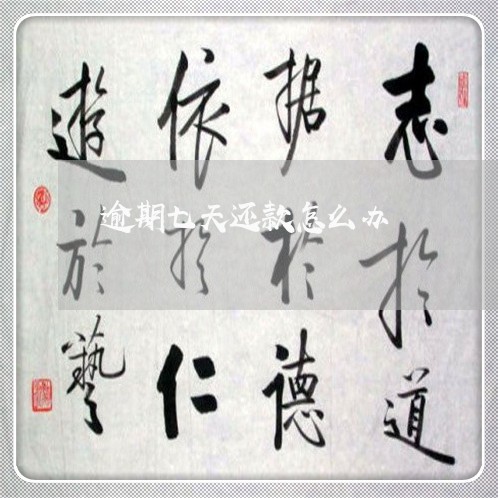 志於道
据於德
依於仁
遊於藝
逾期七天还款怎么办